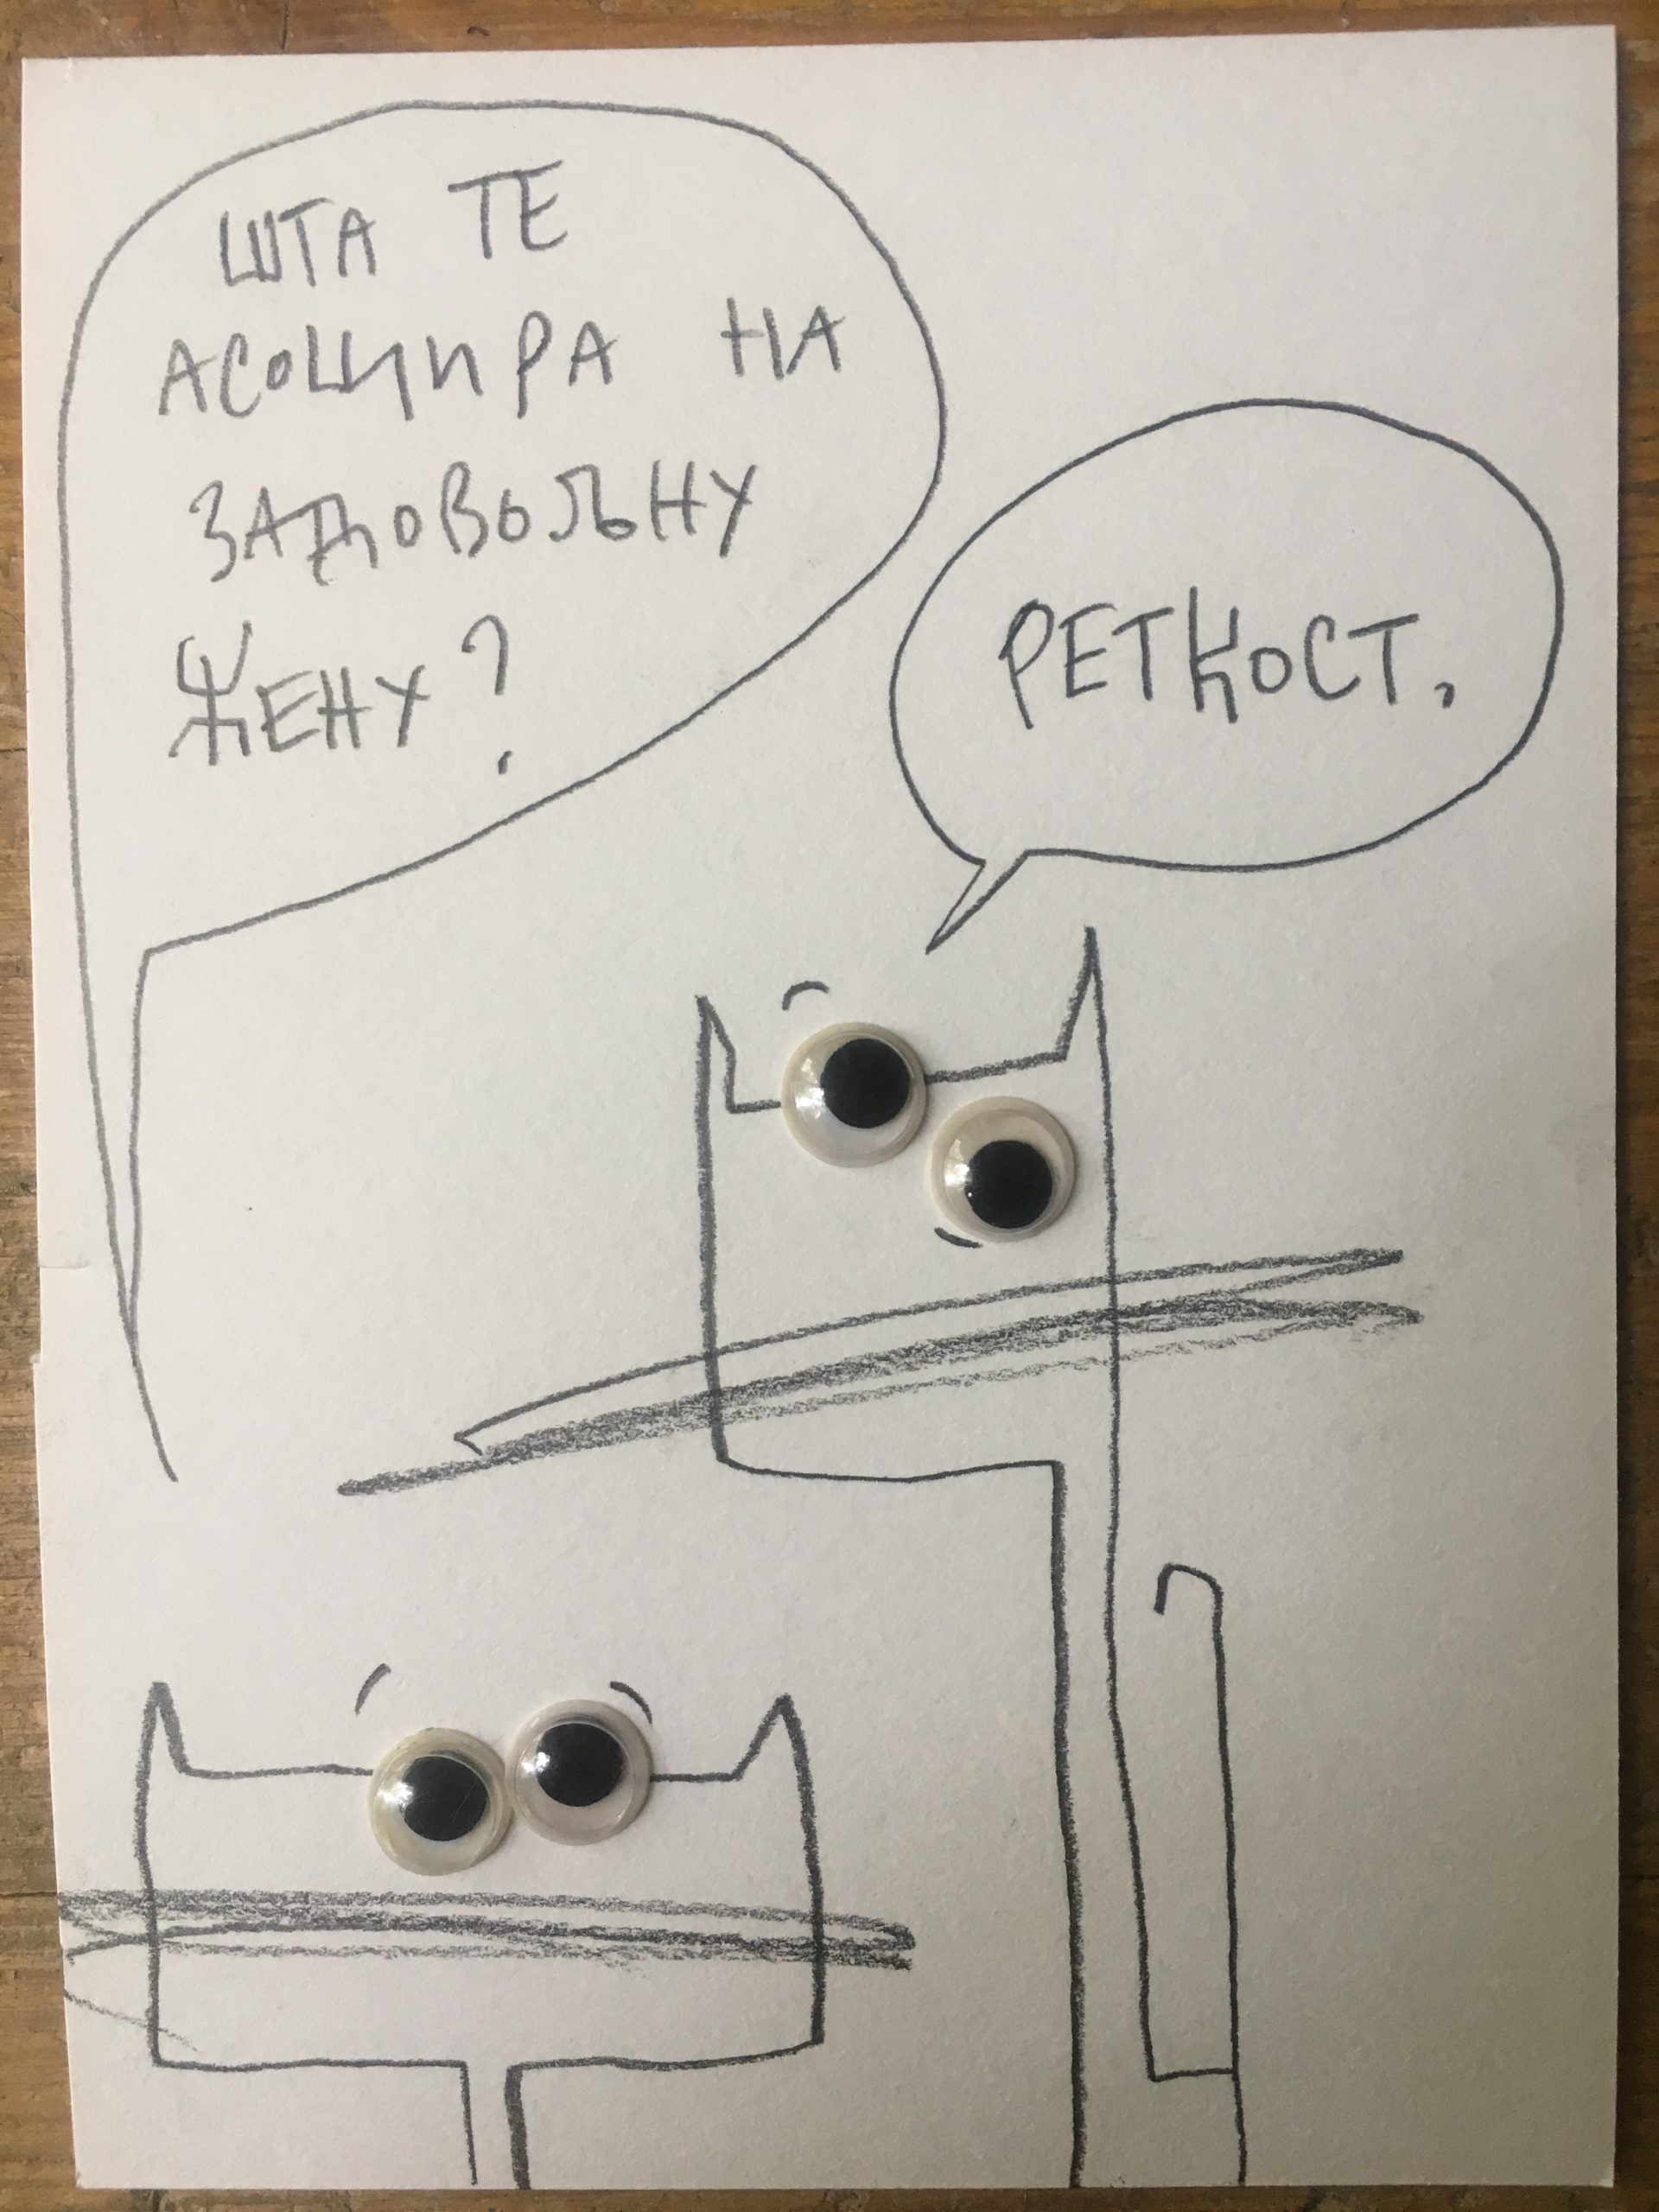 ШТА ТЕ
АСОЦИРА НА
ЗАДОВОЉНУ
ЖЕНУ?
РЕТКОСТ.